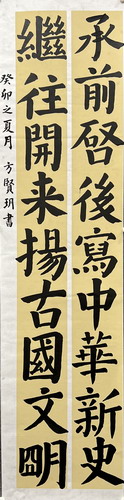 承前啓後寫中華新史
繼往開来揚古國文明
癸卯之夏月 方賢玥書